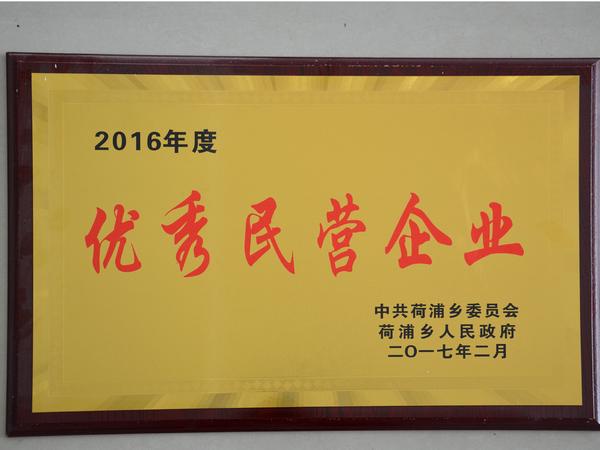 2016年度
优秀民营企业
中共荷浦乡委员会
荷浦乡人民政府
二〇一七年二月